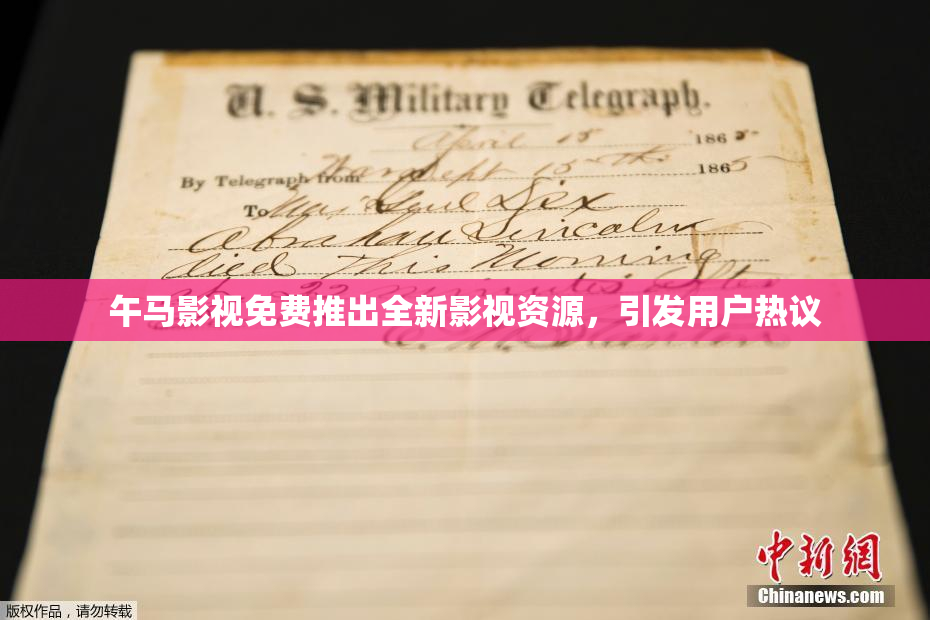 U. S. Military Telegraph.
April 15 1865
By Telegraph from War Dept 15th 1865
To Maj Genl Dix
Abraham Lincoln
died This Morning
午马影视免费推出全新影视资源，引发用户热议
中新网
Chinanews.com
版权作品，请勿转载